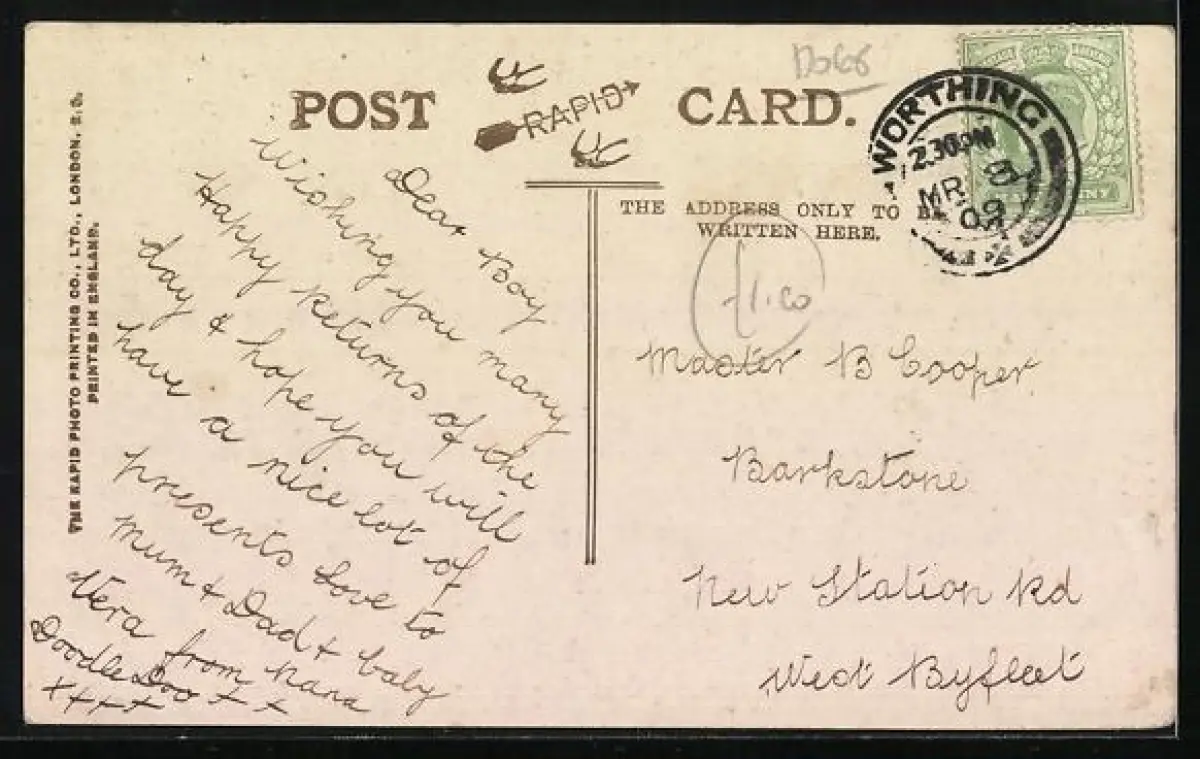 THE RAPID PHOTO PRINTING CO., LTD., LONDON, E.C.
PRINTED IN ENGLAND.
POST CARD.
RAPID
THE ADDRESS ONLY TO BE
WRITTEN HERE.
WORTHING
2.30PM
MR
09
£1.00
Dear Boy
Wishing you many
Happy Returns of the
day & hope you will
have a nice lot of
presents Love to
Mum & Dad & baby
Vera from Nana
Doodle Doo + +
x+++
Master B Cooper
Barkstone
New Station Rd
West Byfleet